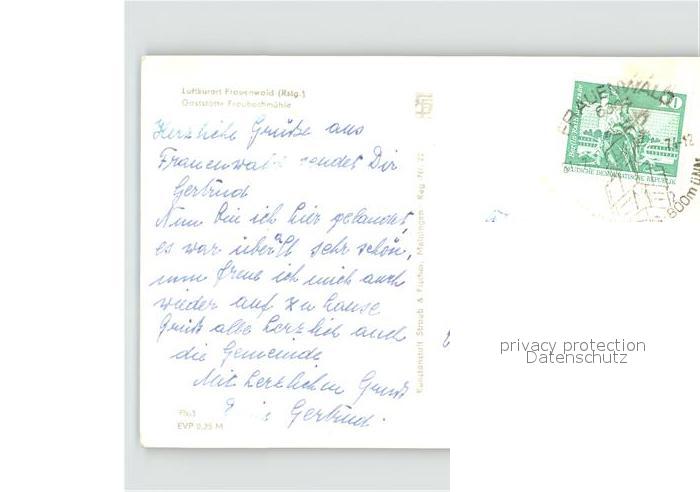 Luftkurort Frauenwald (Rstg.)
Gaststätte Fraubachmühle
Herzliche Grüße aus
Frauenwald sendet Dir
Gertrud
Nun bin ich hier gelandet,
es war überall sehr schön,
nun freue ich mich auch
wieder auf zu Hause
Grüß alle herzlich auch
die Gemeinde
Mit herzlichem Gruß
Gertrud.
EVP 0,25 M
Kunstanstalt Straub & Fischer, Meiningen
FRAUENWALD
6307
DEUTSCHE DEMOKRATISCHE REPUBLIK
800m ü.NN
privacy protection
Datenschutz